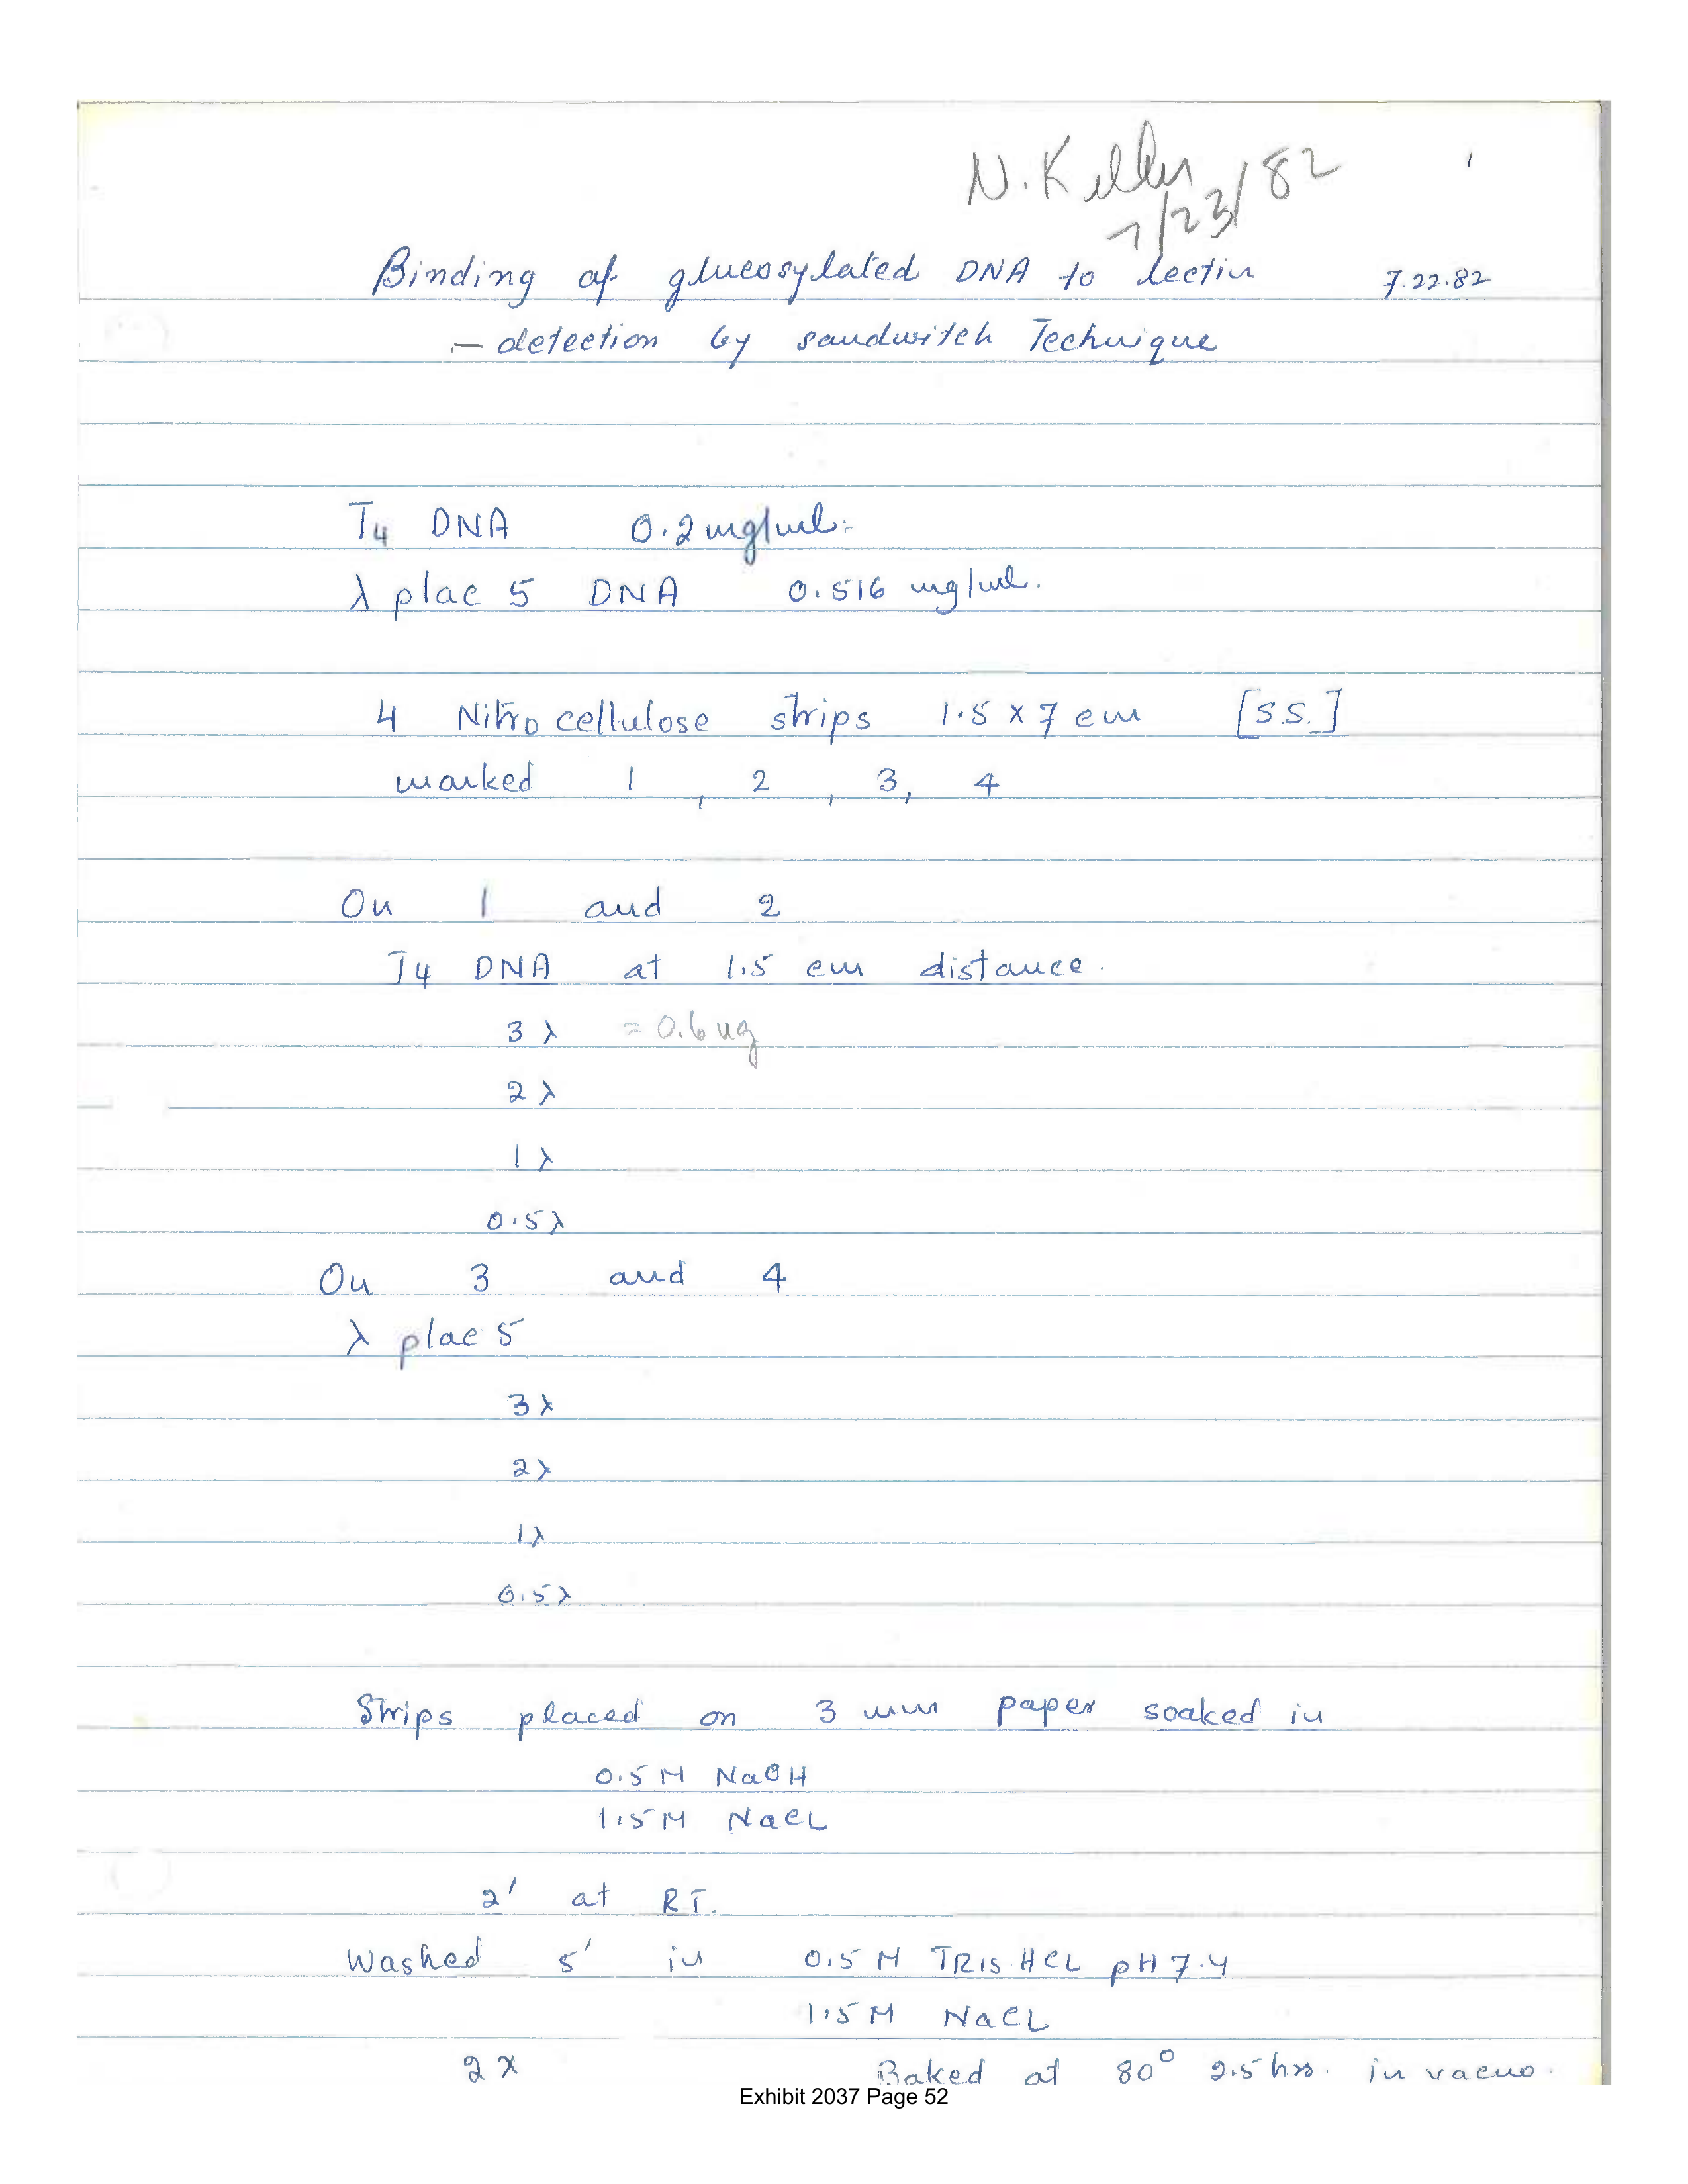 N. Keller 1
7/23/82
Binding of glucosylated DNA to lectin 7.22.82
— detection by sandwitch Technique
T4 DNA 0.2 mg/ml.
λ plac 5 DNA 0.516 mg/ml.
4 Nitrocellulose strips 1.5 x 7 cm [S.S.]
marked 1, 2, 3, 4
On 1 and 2
T4 DNA at 1.5 cm distance.
3 λ = 0.6 ug
2 λ
1 λ
0.5 λ
On 3 and 4
λ plac 5
3 λ
2 λ
1 λ
0.5 λ
Strips placed on 3 mm paper soaked in
0.5 M NaOH
1.5 M NaCL
2' at RT.
Washed 5' in 0.5 M TRIS.HCL pH 7.4
1.5 M NaCL
2 x Baked at 80° 2.5 hrs. in vacuo.
Exhibit 2037 Page 52